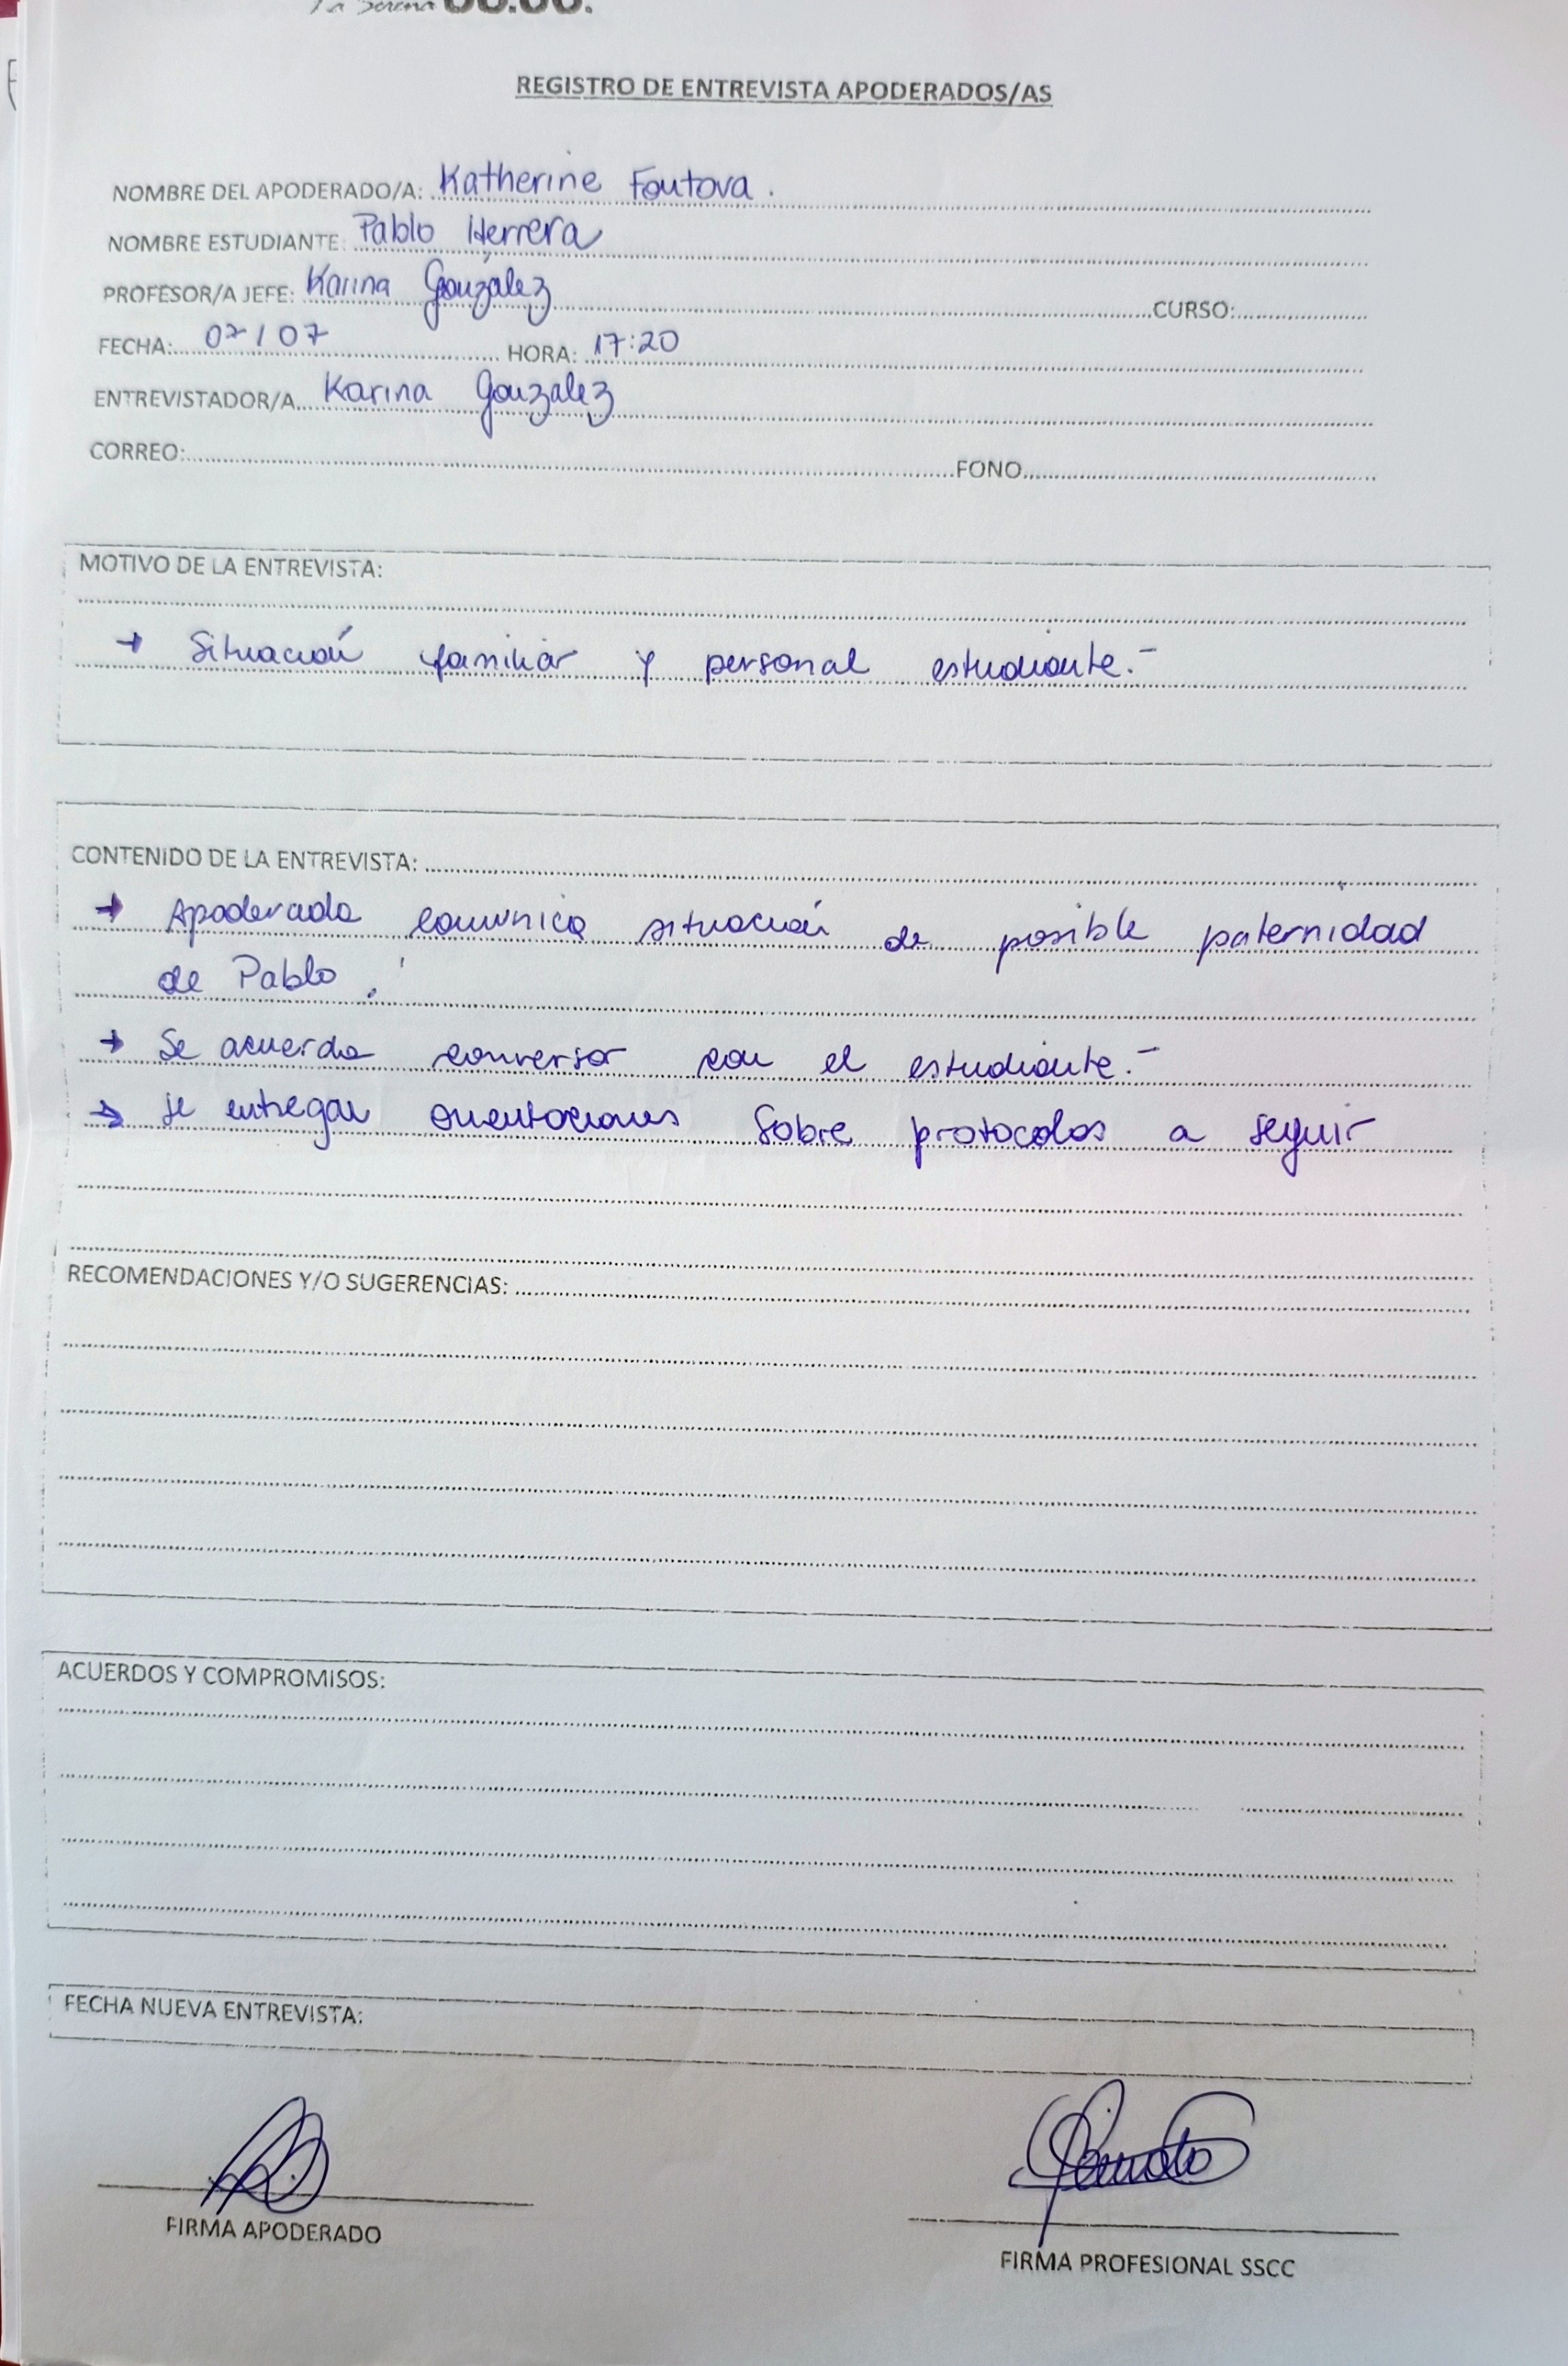 La Serena SS.CC.
REGISTRO DE ENTREVISTA APODERADOS/AS
NOMBRE DEL APODERADO/A: Katherine Foutova.
NOMBRE ESTUDIANTE: Pablo Herrera
PROFESOR/A JEFE: Karina González CURSO:
FECHA: 07/07 HORA: 17:20
ENTREVISTADOR/A Karina González
CORREO: FONO
MOTIVO DE LA ENTREVISTA:
→ Situación familiar y personal estudiante.-
CONTENIDO DE LA ENTREVISTA:
→ Apoderada comunica situación de posible paternidad
de Pablo.
→ Se acuerda conversar con el estudiante.-
→ se entregan orientaciones sobre protocolos a seguir
RECOMENDACIONES Y/O SUGERENCIAS:
ACUERDOS Y COMPROMISOS:
FECHA NUEVA ENTREVISTA:
FIRMA APODERADO
FIRMA PROFESIONAL SSCC